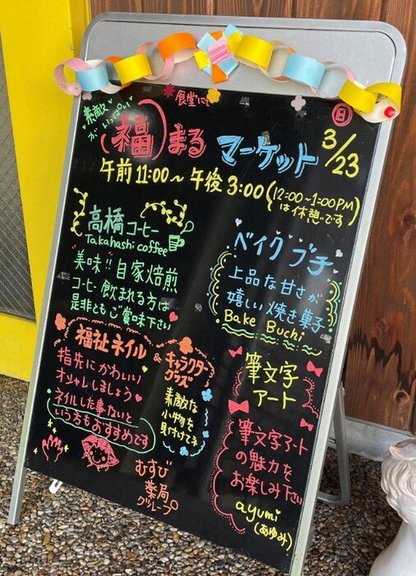 食堂にて
素敵
がいっぱい
福まる
マーケット
3/23
日
午前11:00~午後3:00
(12:00~1:00PM
は休憩です)
高橋コーヒー
Takahashi coffee
美味!!自家焙煎
コーヒー飲まれる方は
是非ともご賞味下さい
ベイク ブチ
上品な甘さが
嬉しい焼き菓子
Bake Buchi
福祉ネイル
指先にかわいい
オシャレしましょう
ネイルした事ないと
いう方もおすすめです
&キャラクター
グッズ
素敵な
小物を
見つけてネ
筆文字
アート
筆文字アート
の魅力を
お楽しみ下さい
ayumi
(あゆみ)
むすび
薬局
グループ